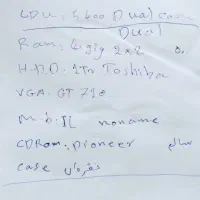 CPU: 5400 Dual core
Dual
Ram: 4 gig 2x2
H.D.D: 1Tr Toshiba
VGA: GT 710
M.b: IL noname
CDRom: pioneer سالم
case